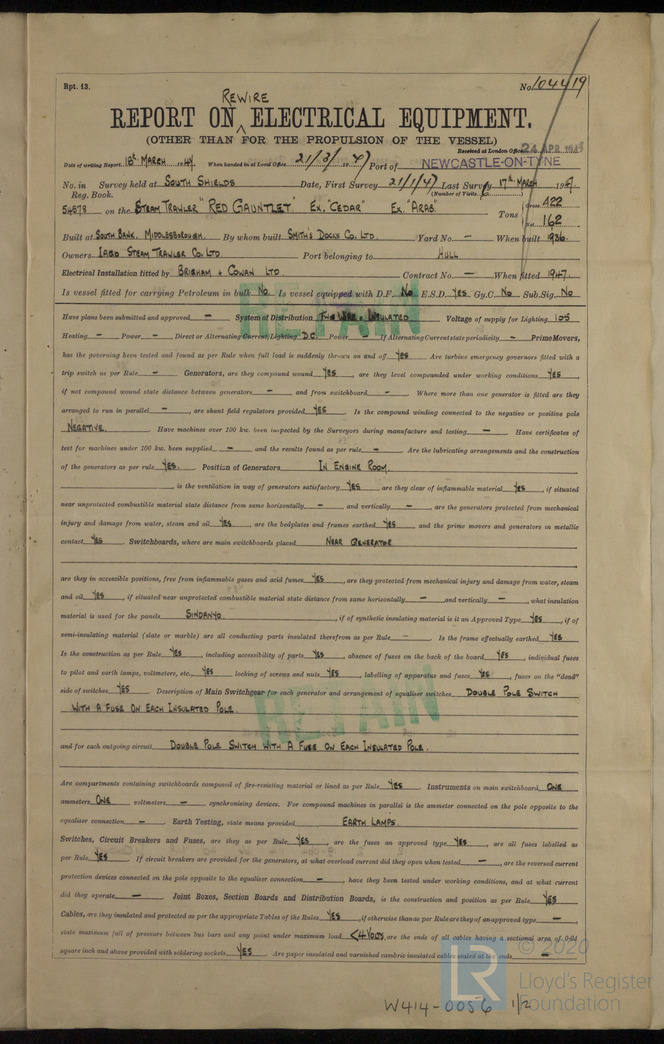 Rpt. 13.
No. 104419
REWIRE
REPORT ON ELECTRICAL EQUIPMENT.
(OTHER THAN FOR THE PROPULSION OF THE VESSEL)
Received at London Office 24 APR
Date of writing Report 18th MARCH 1947 When handed in at Local Office 21/3/1947 Port of NEWCASTLE-ON-TYNE
No. in Survey held at SOUTH SHIELDS Date, First Survey 21/1/47 Last Survey 17th MARCH 1947
Reg. Book. (Number of Visits
54578 on the STEAM TRAWLER "RED GAUNTLET" EX. "CEDAR" EX. "ARAB" Tons Gross 422
Net 162
Built at SOUTH BANK, MIDDLESBOROUGH. By whom built SMITH'S DOCKS CO. LTD. Yard No. – When built 1936
Owners IAGO STEAM TRAWLER CO. LTD Port belonging to HULL
Electrical Installation fitted by BRIGHAM & COWAN LTD. Contract No. – When fitted 1947.
Is vessel fitted for carrying Petroleum in bulk NO Is vessel equipped with D.F. NO E.S.D. YES Gy.C. NO Sub.Sig. NO
RETAIN
Have plans been submitted and approved – System of Distribution TWO WIRE & INSULATED Voltage of supply for Lighting 105
Heating – Power – Direct or Alternating Current, Lighting D.C. Power – If Alternating Current state periodicity – Prime Movers,
has the governing been tested and found as per Rule when full load is suddenly thrown on and off YES Are turbine emergency governors fitted with a
trip switch as per Rule – Generators, are they compound wound YES, are they level compounded under working conditions YES,
if not compound wound state distance between generators – and from switchboard – Where more than one generator is fitted are they
arranged to run in parallel –, are shunt field regulators provided YES. Is the compound winding connected to the negative or positive pole
NEGATIVE. Have machines over 100 kw. been inspected by the Surveyors during manufacture and testing – Have certificates of
test for machines under 100 kw. been supplied – and the results found as per rule – Are the lubricating arrangements and the construction
of the generators as per rule YES. Position of Generators IN ENGINE ROOM.
, is the ventilation in way of generators satisfactory YES, are they clear of inflammable material YES, if situated
near unprotected combustible material state distance from same horizontally – and vertically –, are the generators protected from mechanical
injury and damage from water, steam and oil YES, are the bedplates and frames earthed YES and the prime movers and generators in metallic
contact YES. Switchboards, where are main switchboards placed NEAR GENERATOR
are they in accessible positions, free from inflammable gases and acid fumes YES, are they protected from mechanical injury and damage from water, steam
and oil YES, if situated near unprotected combustible material state distance from same horizontally – and vertically –, what insulating
material is used for the panels SINDANYO, if of synthetic insulating material is it an Approved Type YES, if of
semi-insulating material (slate or marble) are all conducting parts insulated therefrom as per Rule – Is the frame effectually earthed YES
Is the construction as per Rule YES, including accessibility of parts YES, absence of fuses on the back of the board YES, individual fuses
to pilot and earth lamps, voltmeters, etc., YES locking of screws and nuts YES, labelling of apparatus and fuses YES, fuses on the "dead"
side of switches YES. Description of Main Switchgear for each generator and arrangement of equaliser switches DOUBLE POLE SWITCH
WITH A FUSE ON EACH INSULATED POLE.
RETAIN
and for each outgoing circuit DOUBLE POLE SWITCH WITH A FUSE ON EACH INSULATED POLE.
Are compartments containing switchboards composed of fire-resisting material or lined as per Rule YES. Instruments on main switchboard ONE
ammeters ONE voltmeters – synchronising devices. For compound machines in parallel is the ammeter connected on the pole opposite to the
equaliser connection – Earth Testing, state means provided EARTH LAMPS
Switches, Circuit Breakers and Fuses, are they as per Rule YES, are the fuses an approved type YES, are all fuses labelled as
per Rule YES If circuit breakers are provided for the generators, at what overload current did they open when tested –, are the reversed current
protection devices connected on the pole opposite to the equaliser connection –, have they been tested under working conditions, and at what current
did they operate – Joint Boxes, Section Boards and Distribution Boards, is the construction and position as per Rule YES
Cables, are they insulated and protected as per the appropriate Tables of the Rules YES, if otherwise than as per Rule are they of an approved type –,
state maximum fall of pressure between bus bars and any point under maximum load <4 VOLTS, are the ends of all cables having a sectional area of 0.04
square inch and above provided with soldering sockets YES. Are paper insulated and varnished cambric insulated cables sealed at the ends –
© 2020
LR
Lloyd's Register
Foundation
W414-0056 1/2